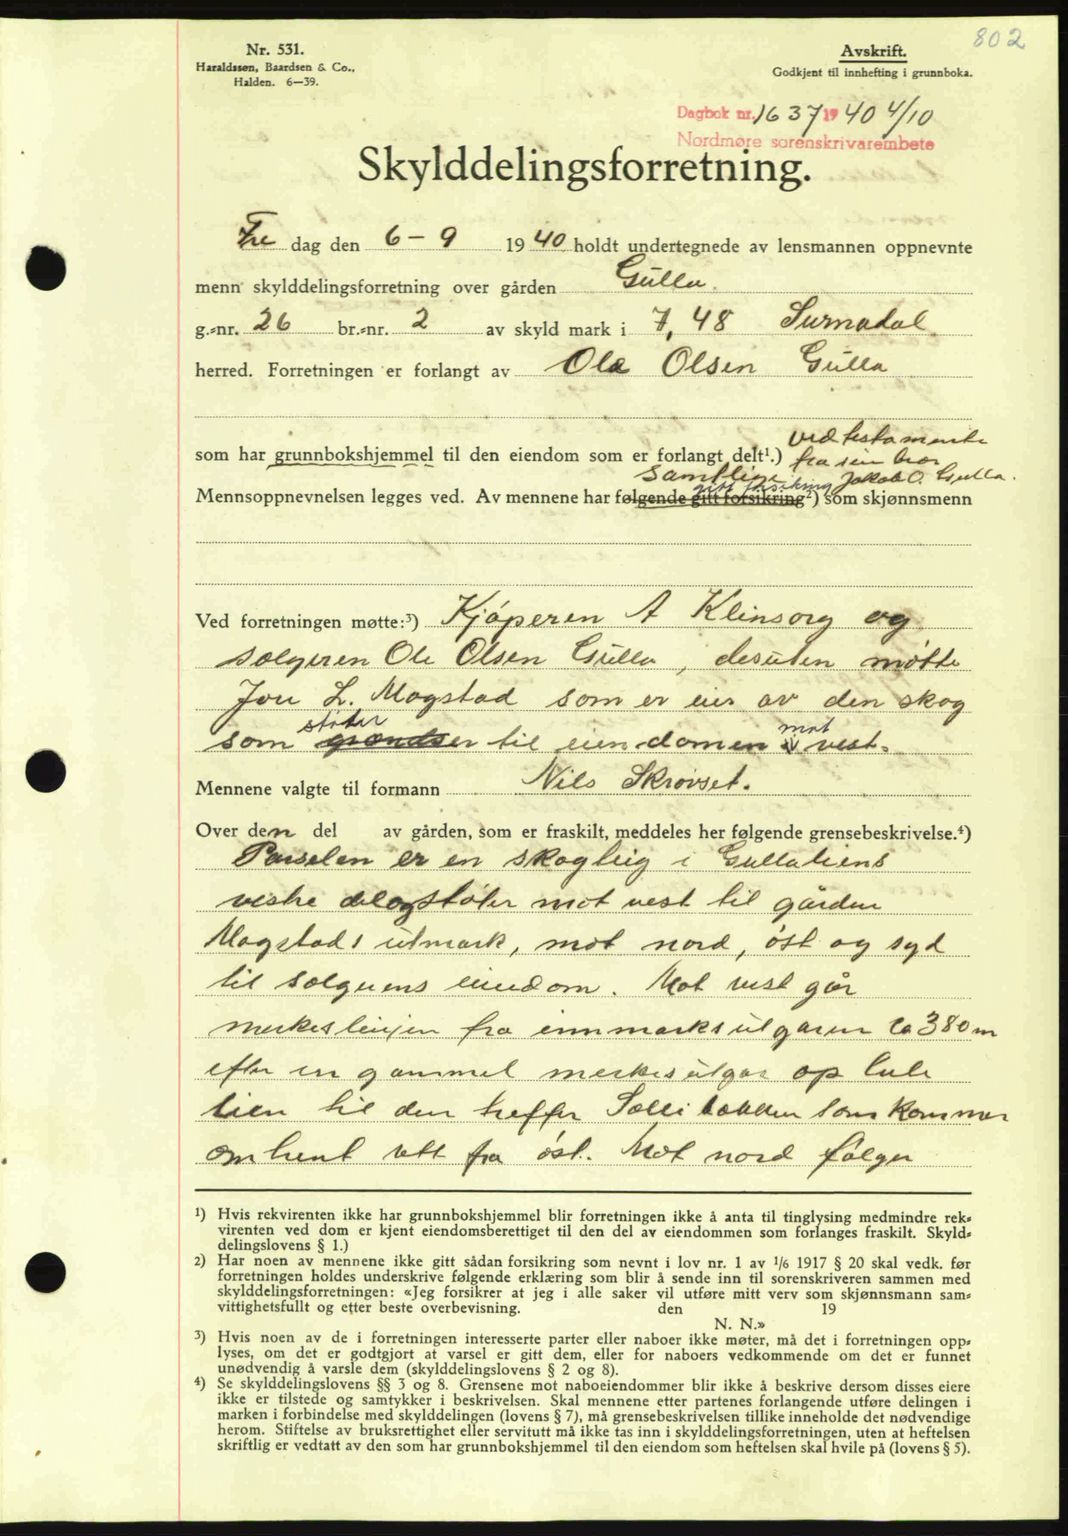 802
Nr. 531.
Haraldssen, Baardsen & Co.,
Halden. 6—39.
Avskrift.
Godkjent til innhefting i grunnboka.
Dagbok nr. 1637 1940 4/10
Nordmøre sorenskrivarembete
Skylddelingsforretning.
Fre dag den 6 - 9 1940 holdt undertegnede av lensmannen oppnevnte
menn skylddelingsforretning over gården Gulla.
g.-nr. 26 br.-nr. 2 av skyld mark i 7,48 Surnadal
herred. Forretningen er forlangt av Ola Olsen Gulla
som har grunnbokshjemmel til den eiendom som er forlangt delt¹.) ved testamente
fra sin bror
Jakob O. Gulla.
samtlige
gitt forsikring
Mennsoppnevnelsen legges ved. Av mennene har følgende gitt forsikring²) som skjønnsmenn
Ved forretningen møtte:³) Kjøperen A Klinsorg og
sælgeren Ole Olsen Gulla, desuten møtte
Jon L. Mogstad som er eier av den skog
som støter til eiendomen mot vest.
Mennene valgte til formann Nils Skrøvset.
Over den del av gården, som er fraskilt, meddeles her følgende grensebeskrivelse.⁴)
Parselen er en skogteig i Gulla liens
vestre del og støter mot vest til gården
Mogstads utmark, mot nord, øst og syd
til sælgerens eiendom. Mot vest går
merkeslinjen fra innmarksutgaren ca 380 m
efter en gammel merkesutgar op
lien til den treffer som kommer
omtrent rett fra øst. Mot nord følger
¹) Hvis rekvirenten ikke har grunnbokshjemmel blir forretningen ikke å anta til tinglysing medmindre rek-
virenten ved dom er kjent eiendomsberettiget til den del av eiendommen som forlanges fraskilt. Skyld-
delingslovens § 1.)
²) Har noen av mennene ikke gitt sådan forsikring som nevnt i lov nr. 1 av 1/6 1917 § 20 skal vedk. før
forretningen holdes underskrive følgende erklæring som blir å sende inn til sorenskriveren sammen med
skylddelingsforretningen: «Jeg forsikrer at jeg i alle saker vil utføre mitt verv som skjønnsmann sam-
vittighetsfullt og etter beste overbevisning. den 19
N. N.»
³) Hvis noen av de i forretningen interesserte parter eller naboer ikke møter, må det i forretningen opp-
lyses, om det er godtgjort at varsel er gitt dem, eller for naboers vedkommende om det er funnet
unødvendig å varsle dem (skylddelingslovens § 2 og 8).
⁴) Se skylddelingslovens §§ 3 og 8. Grensene mot naboeiendommer blir ikke å beskrive dersom disses eiere
ikke er tilstede og samtykker i beskrivelsen. Skal mennene etter partenes forlangende utføre delingen i
marken i forbindelse med skylddelingen (lovens § 7), må grensebeskrivelsen tillike inneholde det nødvendige
herom. Stiftelse av bruksrettighet eller servitutt må ikke tas inn i skylddelingsforretningen, uten at heftelsen
skriftlig er vedtatt av den som har grunnbokshjemmel til den eiendom som heftelsen skal hvile på (lovens § 5).